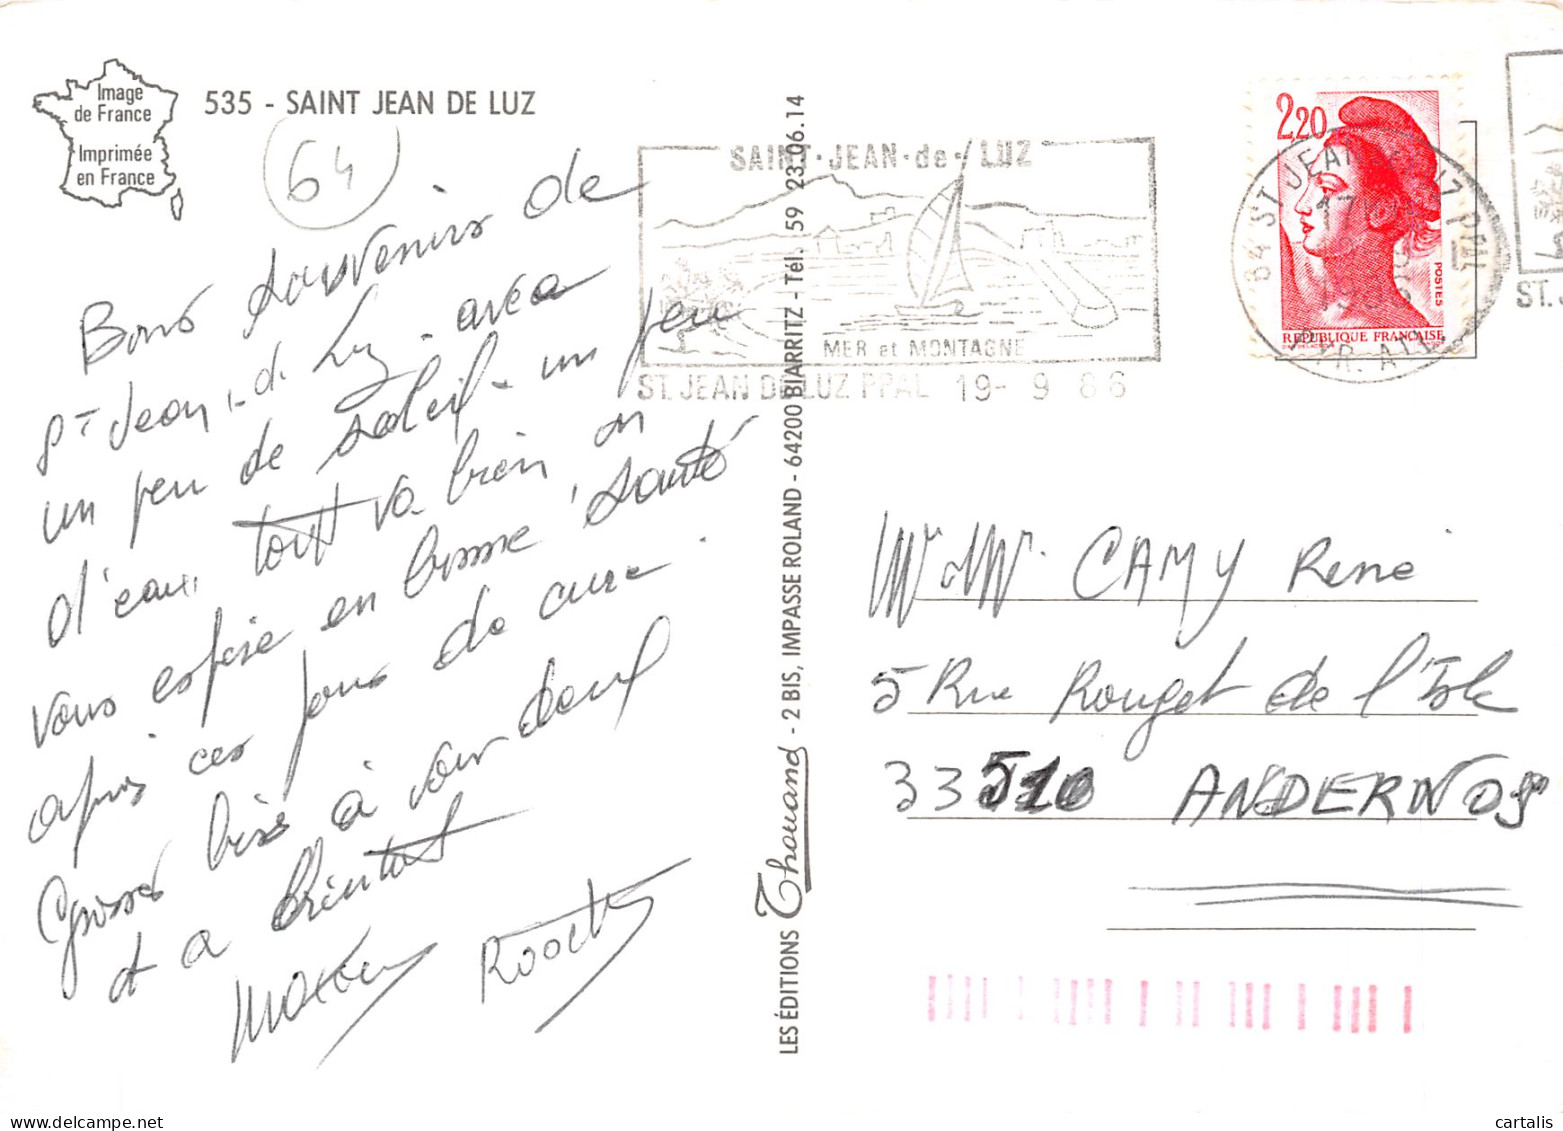 Image
de France
Imprimée
en France
535 - SAINT JEAN DE LUZ
64
Bons souvenirs de
St Jean-de Luz avec
un peu de soleil - un peu
d'eau, tout va bien on
vous espère en bonne santé
après ces jours de cure.
Grosses bises à vous deux
et à bientôt
LES ÉDITIONS Thouand - 2 BIS, IMPASSE ROLAND - 64200 BIARRITZ - Tél. 59 23.06.14
SAINT-JEAN-de-LUZ
MER et MONTAGNE
ST. JEAN DE LUZ PPAL 19- 9 86
2,20
POSTES
REPUBLIQUE FRANÇAISE
64 ST JEAN DE LUZ PPAL
PYR. ATL
ST.
Mr Mme CAMY René
5 Rue Rouget de l'Isle
33510 ANDERNOS
cartalis